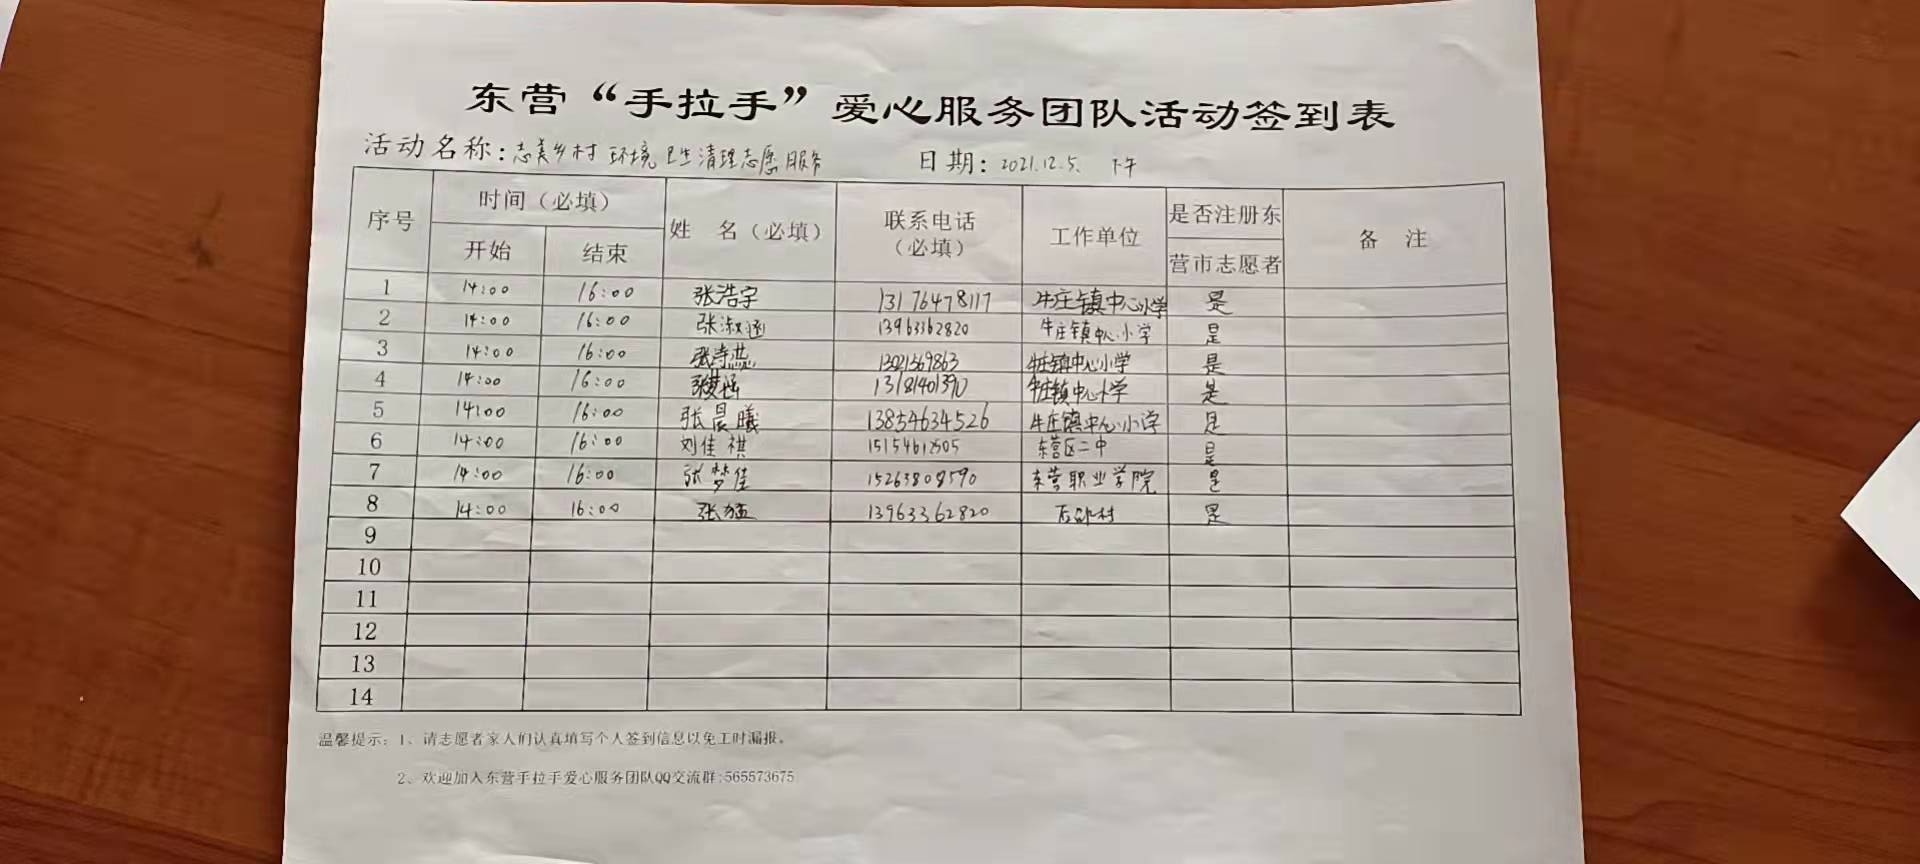 东营“手拉手”爱心服务团队活动签到表
活动名称：志美乡村 环境卫生清理志愿服务 日期：2021.12.5. 下午
序号 时间（必填） 姓 名（必填） 联系电话（必填） 工作单位 是否注册东营市志愿者 备 注
开始 结束
1 14:00 16:00 张浩宇 13176478117 牛庄镇中心小学 是
2 14:00 16:00 张淑涵 13963362820 牛庄镇中心小学 是
3 14:00 16:00 张诗燕 牛庄镇中心小学 是
4 14:00 16:00 牛庄镇中心小学 是
5 14:00 16:00 张晨曦 13854634526 牛庄镇中心小学 是
6 14:00 16:00 刘佳祺 15154612505 东营区二中 是
7 14:00 16:00 张梦佳 15263808590 东营职业学院 是
8 14:00 16:00 张猛 13963362820 是
9
10
11
12
13
14
温馨提示：1、请志愿者家人们认真填写个人签到信息以免工时漏报。
2、欢迎加入东营手拉手爱心服务团队QQ交流群:565573675